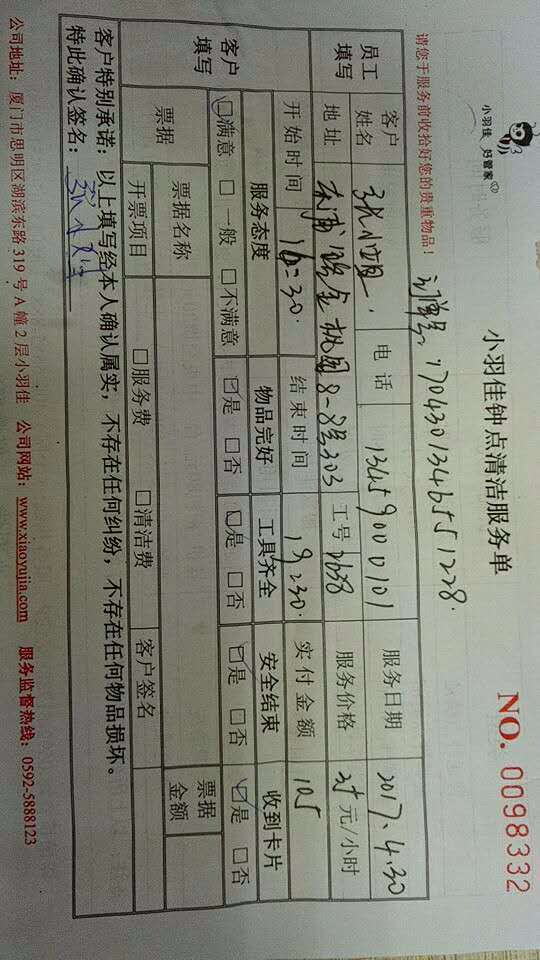 小羽佳 好管家
小羽佳钟点清洁服务单
NO. 0098332
请您于服务前收拾好您的贵重物品!
订单号:17043013465551228.
员工填写
客户姓名 电话 13459000101 服务日期 2017.4.30
地址 金桃园8-8号303 工号 2658 服务价格 35 元/小时
开始时间 16:30. 结束时间 19:30. 实付金额 105
客户填写
服务态度 物品完好 工具齐全 安全结束 收到卡片
☑满意 □一般 □不满意 ☑是 □否 ☑是 □否 ☑是 □否 ☑是 □否
票据 票据名称 票据金额
开票项目 □服务费 □清洁费 客户签名
客户特别承诺:以上填写经本人确认属实,不存在任何纠纷,不存在任何物品损坏。
特此确认签名:
公司地址:厦门市思明区湖滨东路 319 号 A 幢 2 层小羽佳 公司网站:www.xiaoyujia.com 服务监督热线:0592-5888123